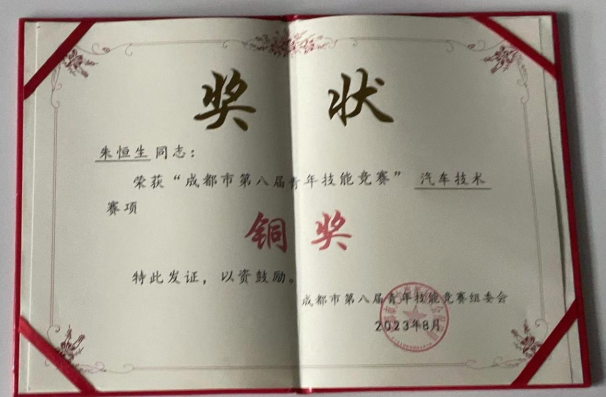 奖状
朱恒生同志：
荣获“成都市第八届青年技能竞赛” 汽车技术
赛项
铜奖
特此发证，以资鼓励。
成都市第八届青年技能竞赛组委会
2023年8月